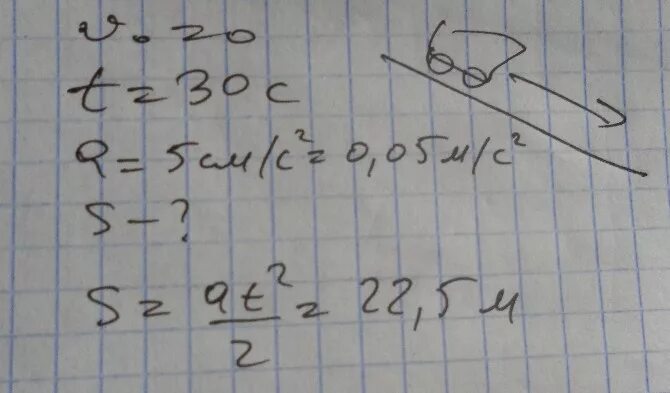 v₀ = 0
t = 30 с
a = 5 см/с² = 0,05 м/с²
S - ?
S = at²/2 = 22,5 м